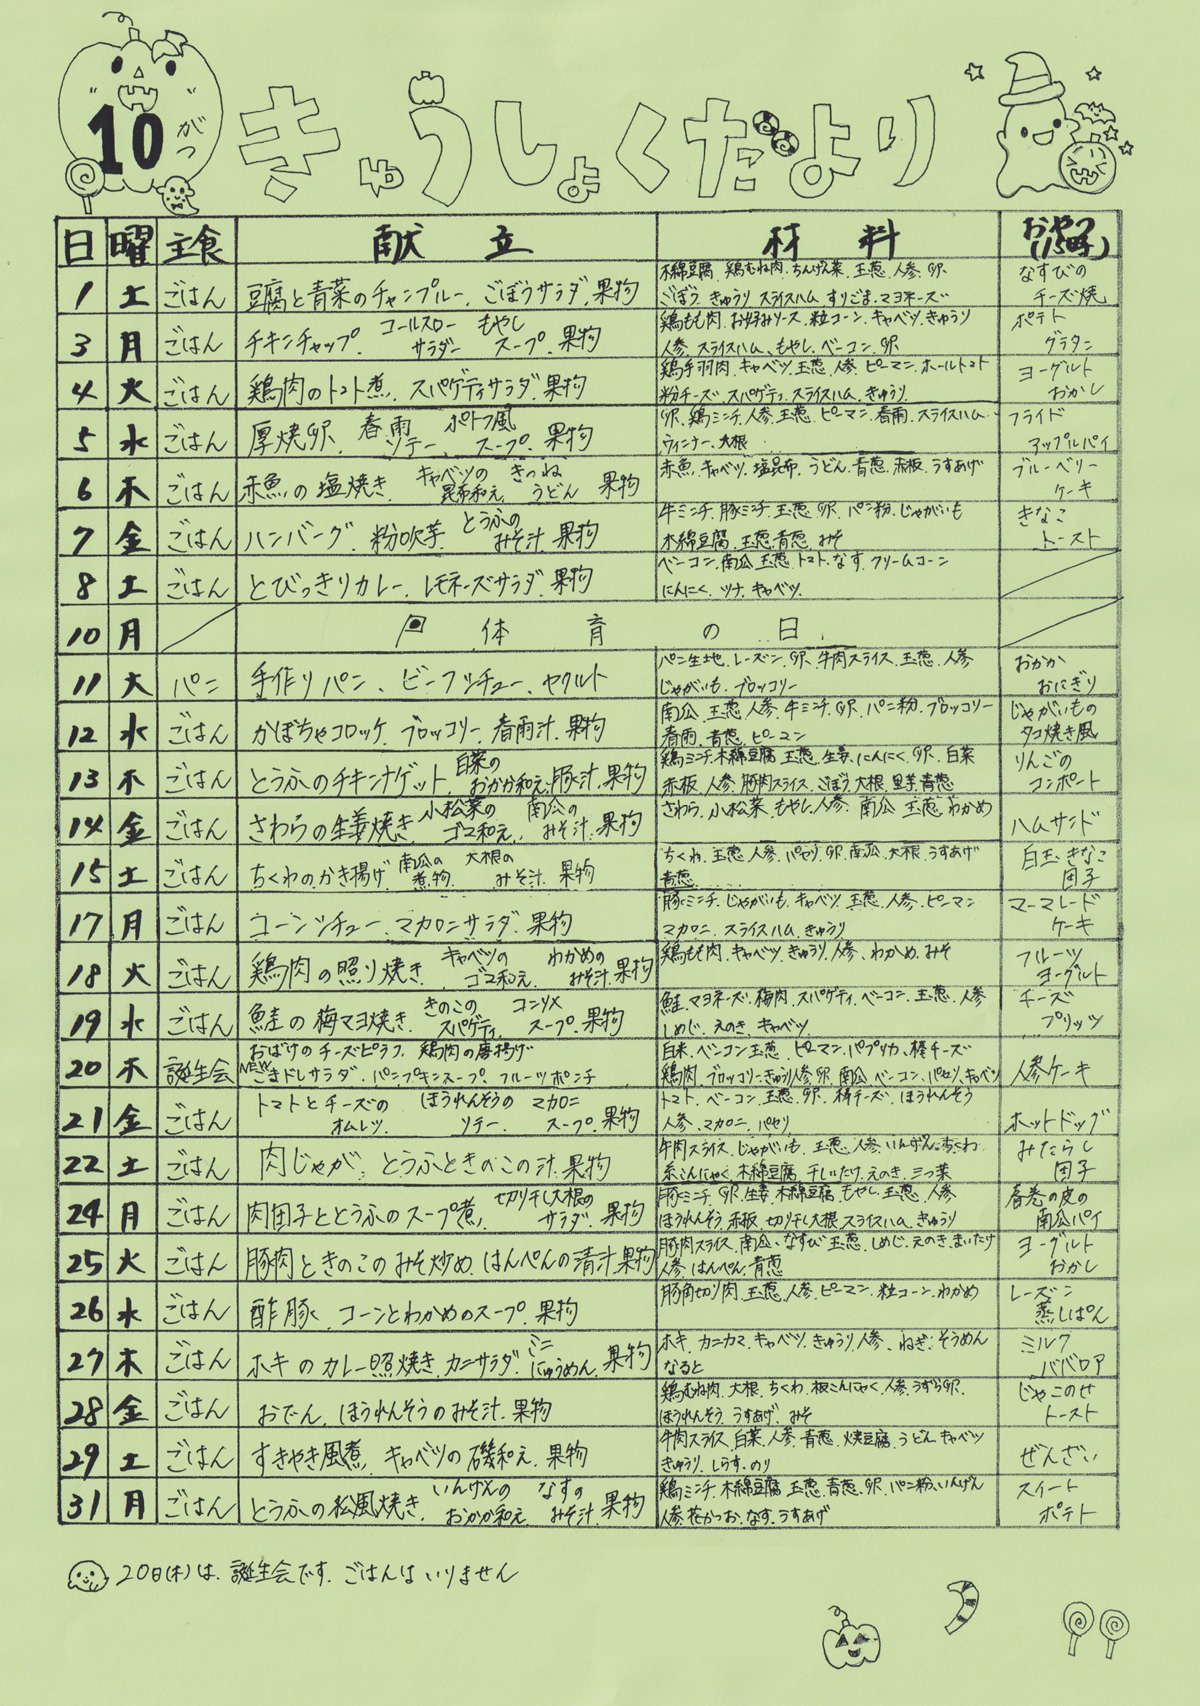 10がつ
きゅうしょくだより
日 曜 主食 献立 材料 おやつ(15時)
1 土 ごはん 豆腐と青菜のチャンプルー、ごぼうサラダ、果物
木綿豆腐、鶏むね肉、ちんげん菜、玉葱、人参、卵、
ごぼう、きゅうり、スライスハム、すりごま、マヨネーズ
なすびの
チーズ焼
3 月 ごはん チキンチャップ、コールスローサラダー、もやしスープ、果物
鶏もも肉、お好みソース、粒コーン、キャベツ、きゅうり
人参、スライスハム、もやし、ベーコン、卵
ポテト
グラタン
4 火 ごはん 鶏肉のトマト煮、スパゲティサラダ、果物
鶏手羽肉、キャベツ、玉葱、人参、ピーマン、ホールトマト
粉チーズ、スパゲティ、スライスハム、きゅうり
ヨーグルト
おかし
5 水 ごはん 厚焼卵、春雨ソテー、ポトフ風スープ、果物
卵、鶏ミンチ、人参、玉葱、ピーマン、春雨、スライスハム、
ウィンナー、大根
フライド
アップルパイ
6 木 ごはん 赤魚の塩焼き、キャベツの昆布和え、きつねうどん 果物
赤魚、キャベツ、塩昆布、うどん、青葱、赤板、うすあげ
ブルーベリー
ケーキ
7 金 ごはん ハンバーグ、粉吹芋、とうふのみそ汁、果物
牛ミンチ、豚ミンチ、玉葱、卵、パン粉、じゃがいも
木綿豆腐、玉葱、青葱、みそ
きなこ
トースト
8 土 ごはん とびっきりカレー、レモネーズサラダ、果物
ベーコン、南瓜、玉葱、トマト、なす、クリームコーン
にんにく、ツナ、キャベツ、
10 月 体育の日
11 火 パン 手作りパン、ビーフシチュー、ヤクルト
パン生地、レーズン、卵、牛肉スライス、玉葱、人参
じゃがいも、ブロッコリー
おかか
おにぎり
12 水 ごはん かぼちゃコロッケ、ブロッコリー、春雨汁、果物
南瓜、玉葱、人参、牛ミンチ、卵、パン粉、ブロッコリー
春雨、青葱、ピーマン
じゃがいもの
タコ焼き風
13 木 ごはん とうふのチキンナゲット、白菜のおかか和え、豚汁、果物
鶏ミンチ、木綿豆腐、玉葱、生姜、にんにく、卵、白菜
赤板、人参、豚肉スライス、ごぼう、大根、里芋、青葱
りんごの
コンポート
14 金 ごはん さわらの生姜焼き、小松菜のゴマ和え、南瓜のみそ汁、果物
さわら、小松菜、もやし、人参、南瓜、玉葱、わかめ
ハムサンド
15 土 ごはん ちくわのかき揚げ、南瓜の煮物、大根のみそ汁、果物
ちくわ、玉葱、人参、パセリ、卵、南瓜、大根、うすあげ
青葱
白玉きなこ
団子
17 月 ごはん コーンシチュー、マカロニサラダ、果物
豚ミンチ、じゃがいも、キャベツ、玉葱、人参、ピーマン
マカロニ、スライスハム、きゅうり
マーマレード
ケーキ
18 火 ごはん 鶏肉の照り焼き、キャベツのゴマ和え、わかめのみそ汁、果物
鶏もも肉、キャベツ、きゅうり、人参、わかめ、みそ
フルーツ
ヨーグルト
19 水 ごはん 鮭の梅マヨ焼き、きのこのスパゲティ、コンソメスープ、果物
鮭、マヨネーズ、梅肉、スパゲティ、ベーコン、玉葱、人参
しめじ、えのき、キャベツ、
チーズ
プリッツ
20 木 誕生会 おばけのチーズピラフ、鶏肉の唐揚げ
NEWごまドレサラダ、パンプキンスープ、フルーツポンチ
白米、ベーコン、玉葱、ピーマン、パプリカ、棒チーズ
鶏肉、ブロッコリー、きゅうり、人参、卵、南瓜、ベーコン、パセリ、キャベツ
人参ケーキ
21 金 ごはん トマトとチーズのオムレツ、ほうれんそうのソテー、マカロニスープ、果物
トマト、ベーコン、玉葱、卵、棒チーズ、ほうれんそう
人参、マカロニ、パセリ
ホットドッグ
22 土 ごはん 肉じゃが、とうふときのこの汁、果物
牛肉スライス、じゃがいも、玉葱、人参、いんげん、ちくわ
糸こんにゃく、木綿豆腐、干しいたけ、えのき、三つ葉
みたらし
団子
24 月 ごはん 肉団子ととうふのスープ煮、切り干し大根のサラダ、果物
豚ミンチ、卵、生姜、木綿豆腐、もやし、玉葱、人参
ほうれんそう、赤板、切り干し大根、スライスハム、きゅうり
春巻の皮の
南瓜パイ
25 火 ごはん 豚肉ときのこのみそ炒め、はんぺんの清汁、果物
豚肉スライス、南瓜、なすび、玉葱、しめじ、えのき、まいたけ
人参、はんぺん、青葱
ヨーグルト
おかし
26 水 ごはん 酢豚、コーンとわかめのスープ、果物
豚角切り肉、玉葱、人参、ピーマン、粒コーン、わかめ
レーズン
蒸しぱん
27 木 ごはん ホキのカレー照焼き、カニサラダ、ミニにゅうめん、果物
ホキ、カニカマ、キャベツ、きゅうり、人参、ねぎ、そうめん
なると
ミルク
ババロア
28 金 ごはん おでん、ほうれんそうのみそ汁、果物
鶏むね肉、大根、ちくわ、板こんにゃく、人参、うずら卵、
ほうれんそう、うすあげ、みそ
じゃこのせ
トースト
29 土 ごはん すきやき風煮、キャベツの磯和え、果物
牛肉スライス、白菜、人参、青葱、焼豆腐、うどん、キャベツ
きゅうり、しらす、のり
ぜんざい
31 月 ごはん とうふの松風焼き、いんげんのおかか和え、なすのみそ汁、果物
鶏ミンチ、木綿豆腐、玉葱、青葱、卵、パン粉、いんげん
人参、花かつお、なす、うすあげ
スイート
ポテト
20日(木)は、誕生会です。ごはんはいりません